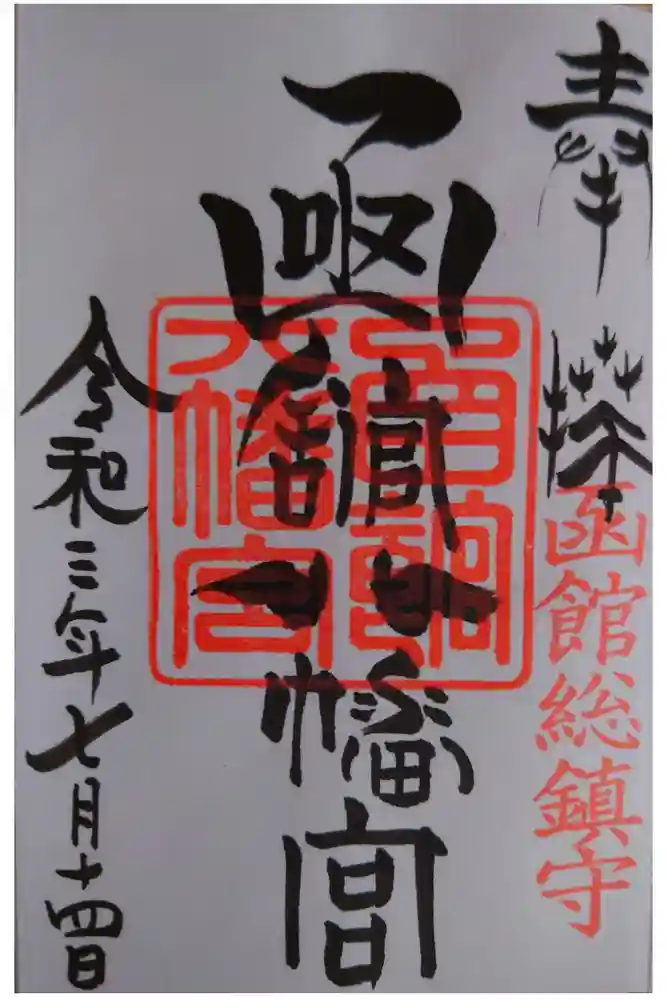 奉拝
函館総鎮守
函館八幡宮
函館八幡宮
令和三年七月十四日